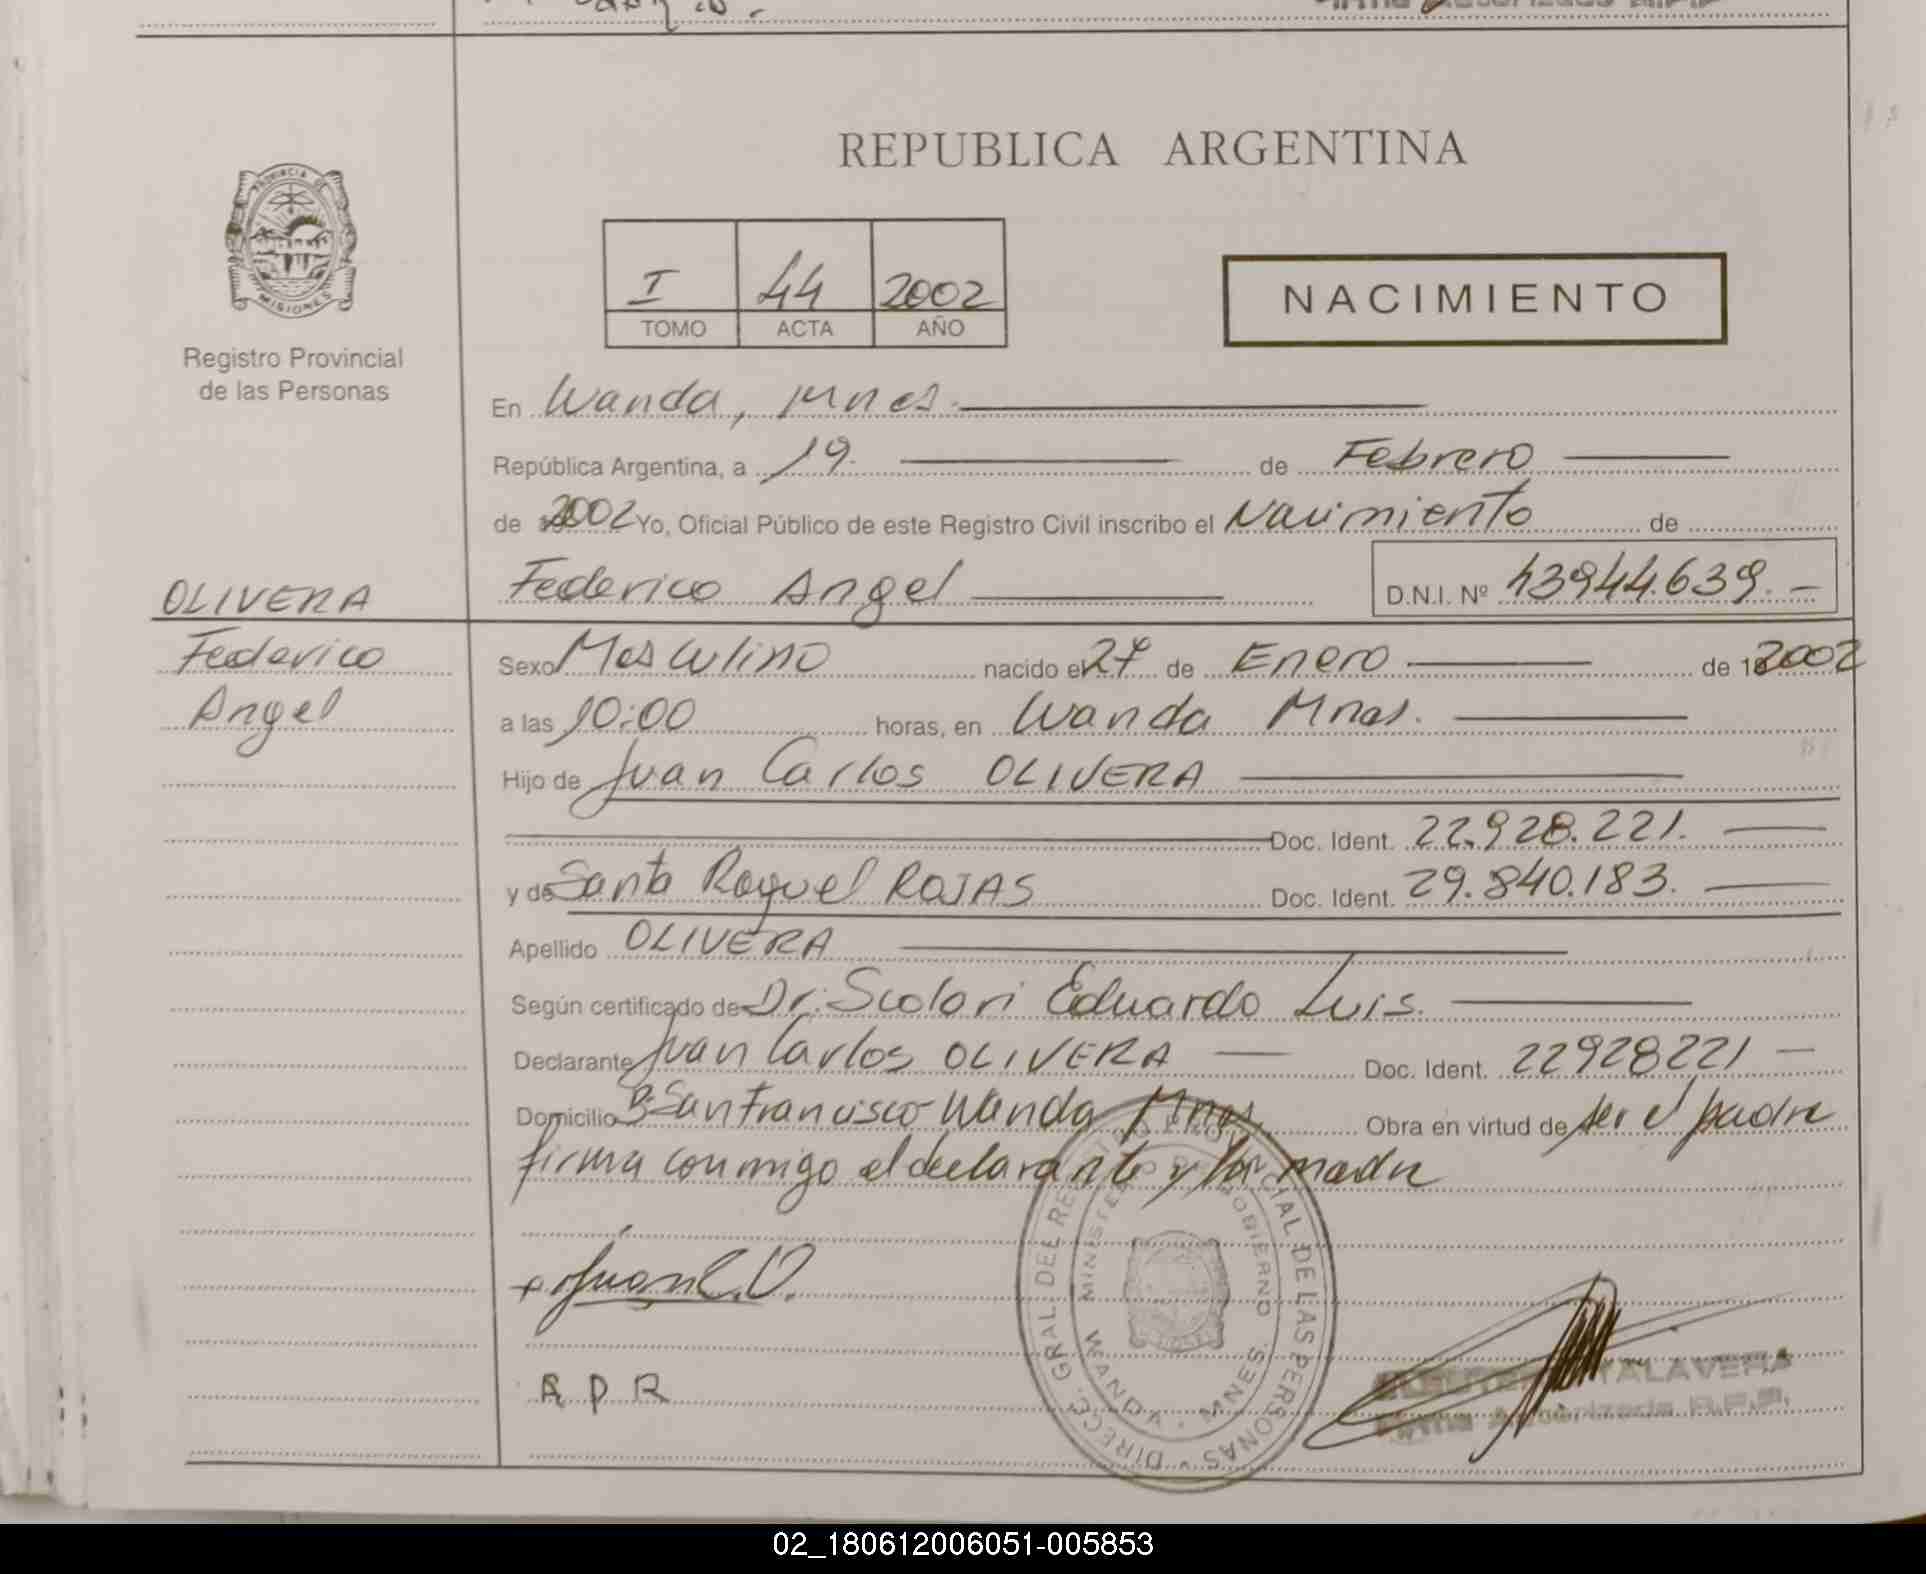 REPUBLICA ARGENTINA
PROVINCIA DE
MISIONES
Registro Provincial
de las Personas
I 44 2002
TOMO ACTA AÑO
NACIMIENTO
En Wanda, Mnes.
República Argentina, a 19 de Febrero
de 2002 Yo, Oficial Público de este Registro Civil inscribo el Nacimiento de
OLIVERA
Federico Angel D.N.I. Nº 43944.639.-
Federico
Angel
Sexo Masculino nacido el 27 de Enero de 2002
a las 10:00 horas, en Wanda Mnes.
Hijo de Juan Carlos OLIVERA
Doc. Ident. 22.928.221.
y de Santa Raquel ROJAS Doc. Ident. 29.840.183.
Apellido OLIVERA
Según certificado de Dr. Scolari Eduardo Luis.
Declarante Juan Carlos OLIVERA Doc. Ident. 22928221
Domicilio Bº San Francisco-Wanda Mnes. Obra en virtud de ser el padre
firma conmigo el declarante y la madre
Juan C.O.
R D R
DIRECC. GRAL. DEL REGISTRO PROVINCIAL DE LAS PERSONAS
MINISTERIO DE GOBIERNO
WANDA - MNES.
TALAVERA
Firma Autorizada R.P.P.
02_180612006051-005853